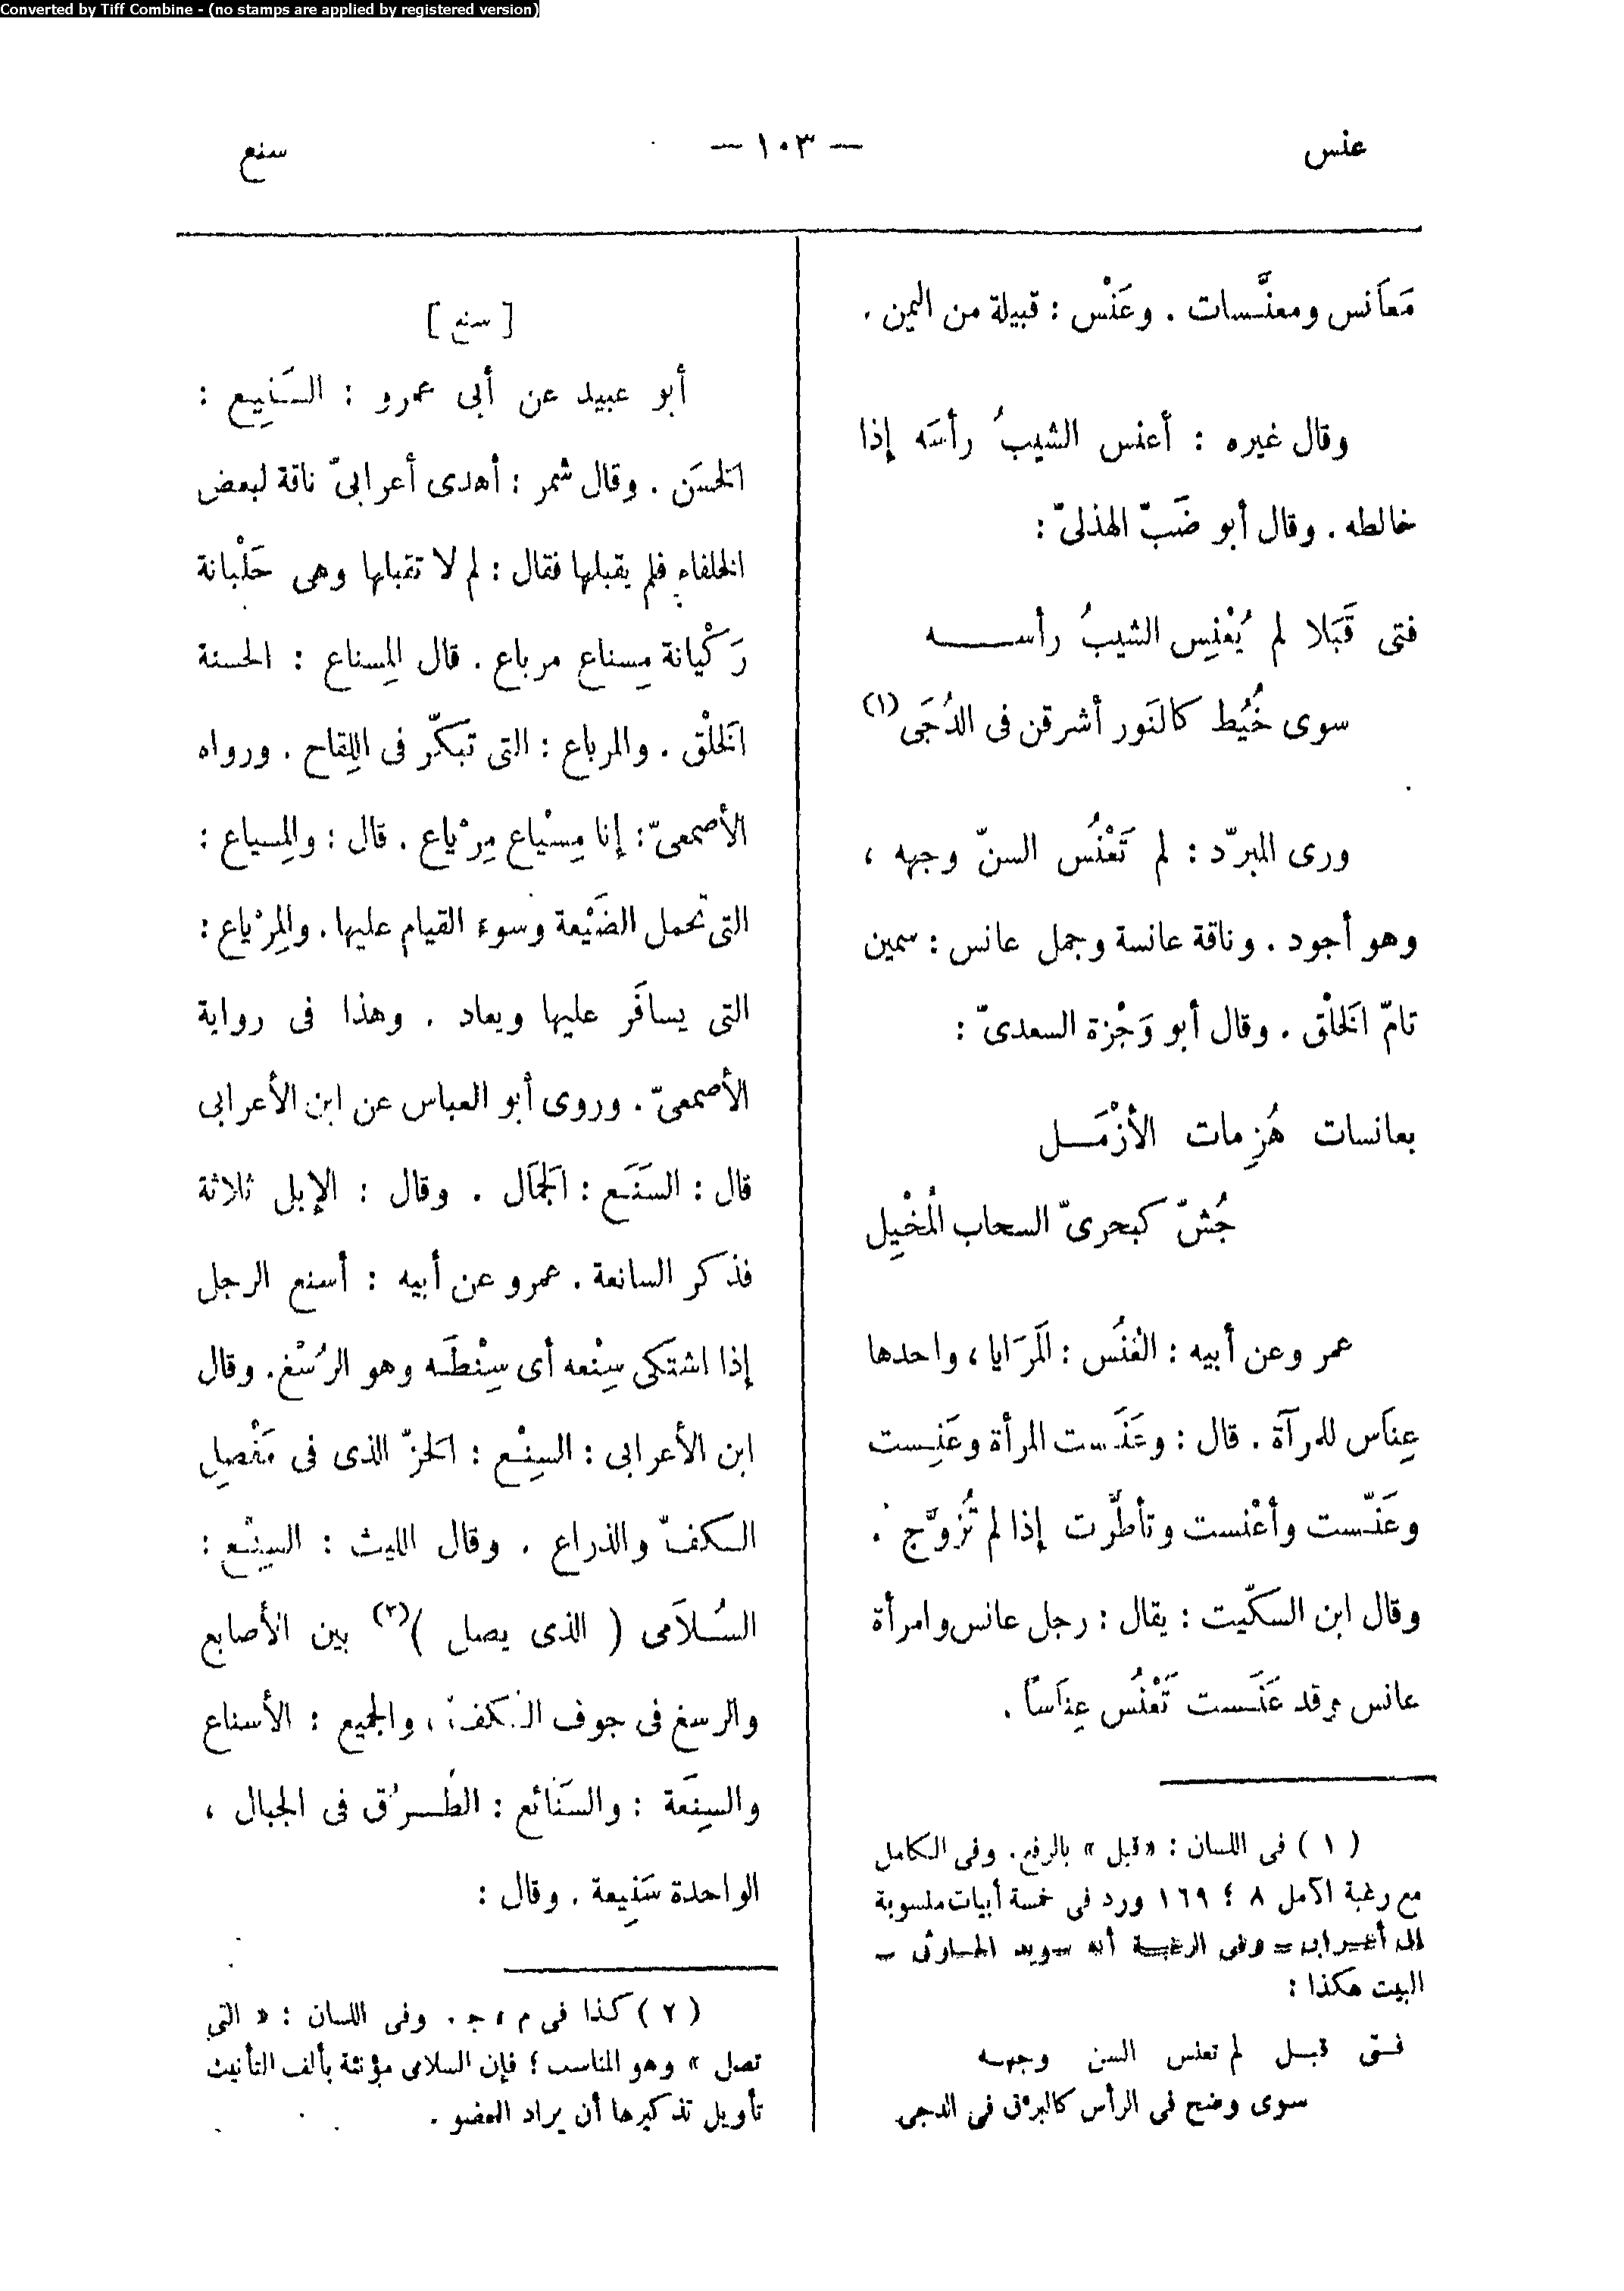 Converted by Tiff Combine - (no stamps are applied by registered version)
عنس
— ١٠٣ —
سنع
مَعَانس ومعنَّسات . وعَنْس : قبيلة من اليمن .
وقال غيره : أعنس الشيبُ رأسَه إذا
خالطه . وقال أبو ضَبّ الهذلىّ :
فتى قَبَلا لم يُعْنِس الشيبُ رأســـه
سوى خُيُط كالنَور أشرقن فى الدُجَى (١)
ورى المبرّد : لم تَعْنُس السنّ وجهه ،
وهو أجود . وناقة عانسة وجمل عانس : سمين
تامّ الخَلْق . وقال أبو وَجْزة السعدىّ :
بعانسات هُزِمات الأزْمَــل
جُشّ كبحرىّ السحاب الُمخْيِل
عمر وعن أبيه : العُنُس : الَمرَايا ، واحدها
عِنَاس للمرآة . قال : وعَنَست المرأة وعَنِست
وعَنّست وأعْنست وتأطّرت إذا لم تُزوَّج .
وقال ابن السكّيت : يقال : رجل عانس وامرأة
عانس وقد عَنَست تَعْنُس عِنَاسًا .
( ١ ) فى اللسان : «قبل» بالرفع . وفى الكامل
مع رغبة الآمل ٨ ؛ ١٦٩ ورد فى خمسة أبيات منسوبة
إلى أعرابى = وفى الرغبة أنه سويد الحارثى –
البيت هكذا :
فتى قبل لم تعنس السن وجهه
سوى وضح فى الرأس كالبرق فى الدجى
[ سنع ]
أبو عبيد عن أبى عمرو : السَنِيع :
الحَسَن . وقال شمر : أهدى أعرابىّ ناقة لبعض
الخلفاء فلم يقبلها فقال : لم لا تقبلها وهى حَلْبانة
رَكْبانة مِسناع مرباع . قال المِسناع : الحسنة
الخَلْق . والمرباع : التى تبكّر فى اللِقاح . ورواه
الأصمعىّ : إنا مِسْياع مِرْياع . قال : والمِسياع :
التى تحمل الضَيْعة وسوء القيام عليها . والمِرْياع :
التى يسافَر عليها ويعاد . وهذا فى رواية
الأصمعىّ . وروى أبو العباس عن ابن الأعرابى
قال : السَنَع : الَجمَال . وقال : الإبل ثلاثة
فذكر السانعة . عمرو عن أبيه : أسنع الرجل
إذا اشتكى سِنْعه أى سِنْطَه وهو الرُسْغ . وقال
ابن الأعرابى : السِنْع : الحَزّ الذى فى مَفْصِل
الكفّ والذراع . وقال الليث : السِنْع :
السُلاَمى ( الذى يصل )(٢) بين الأصابع
والرسغ فى جوف الكفّ ، والجميع : الأسناع
والسِنَعة : والسَنَائع : الطُرُق فى الجبال ،
الواحدة سَنِيعة . وقال :
( ٢ ) كذا فى م ، ج . وفى اللسان : « التى
تصل » وهو المناسب ؛ فإن السلامى مؤنثة بألف التأنيث
تأويل تذكيرها أن يراد العضو .